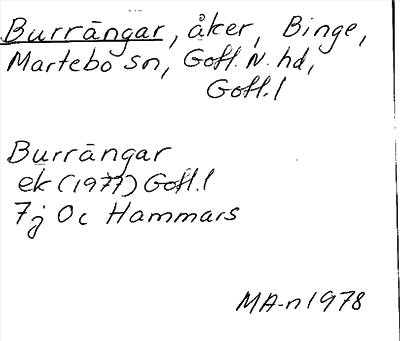 Burrängar, åker, Binge,
Martebo sn, Gotl. N. hd,
Gotl. l
Burrängar
ek (1977) Gotl. l
7j Oc Hammars
MA-n 1978